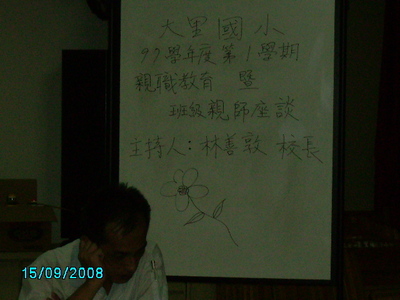 大里國小
97學年度第1學期
親職教育 暨
班級親師座談
主持人：林善敦 校長
15/09/2008